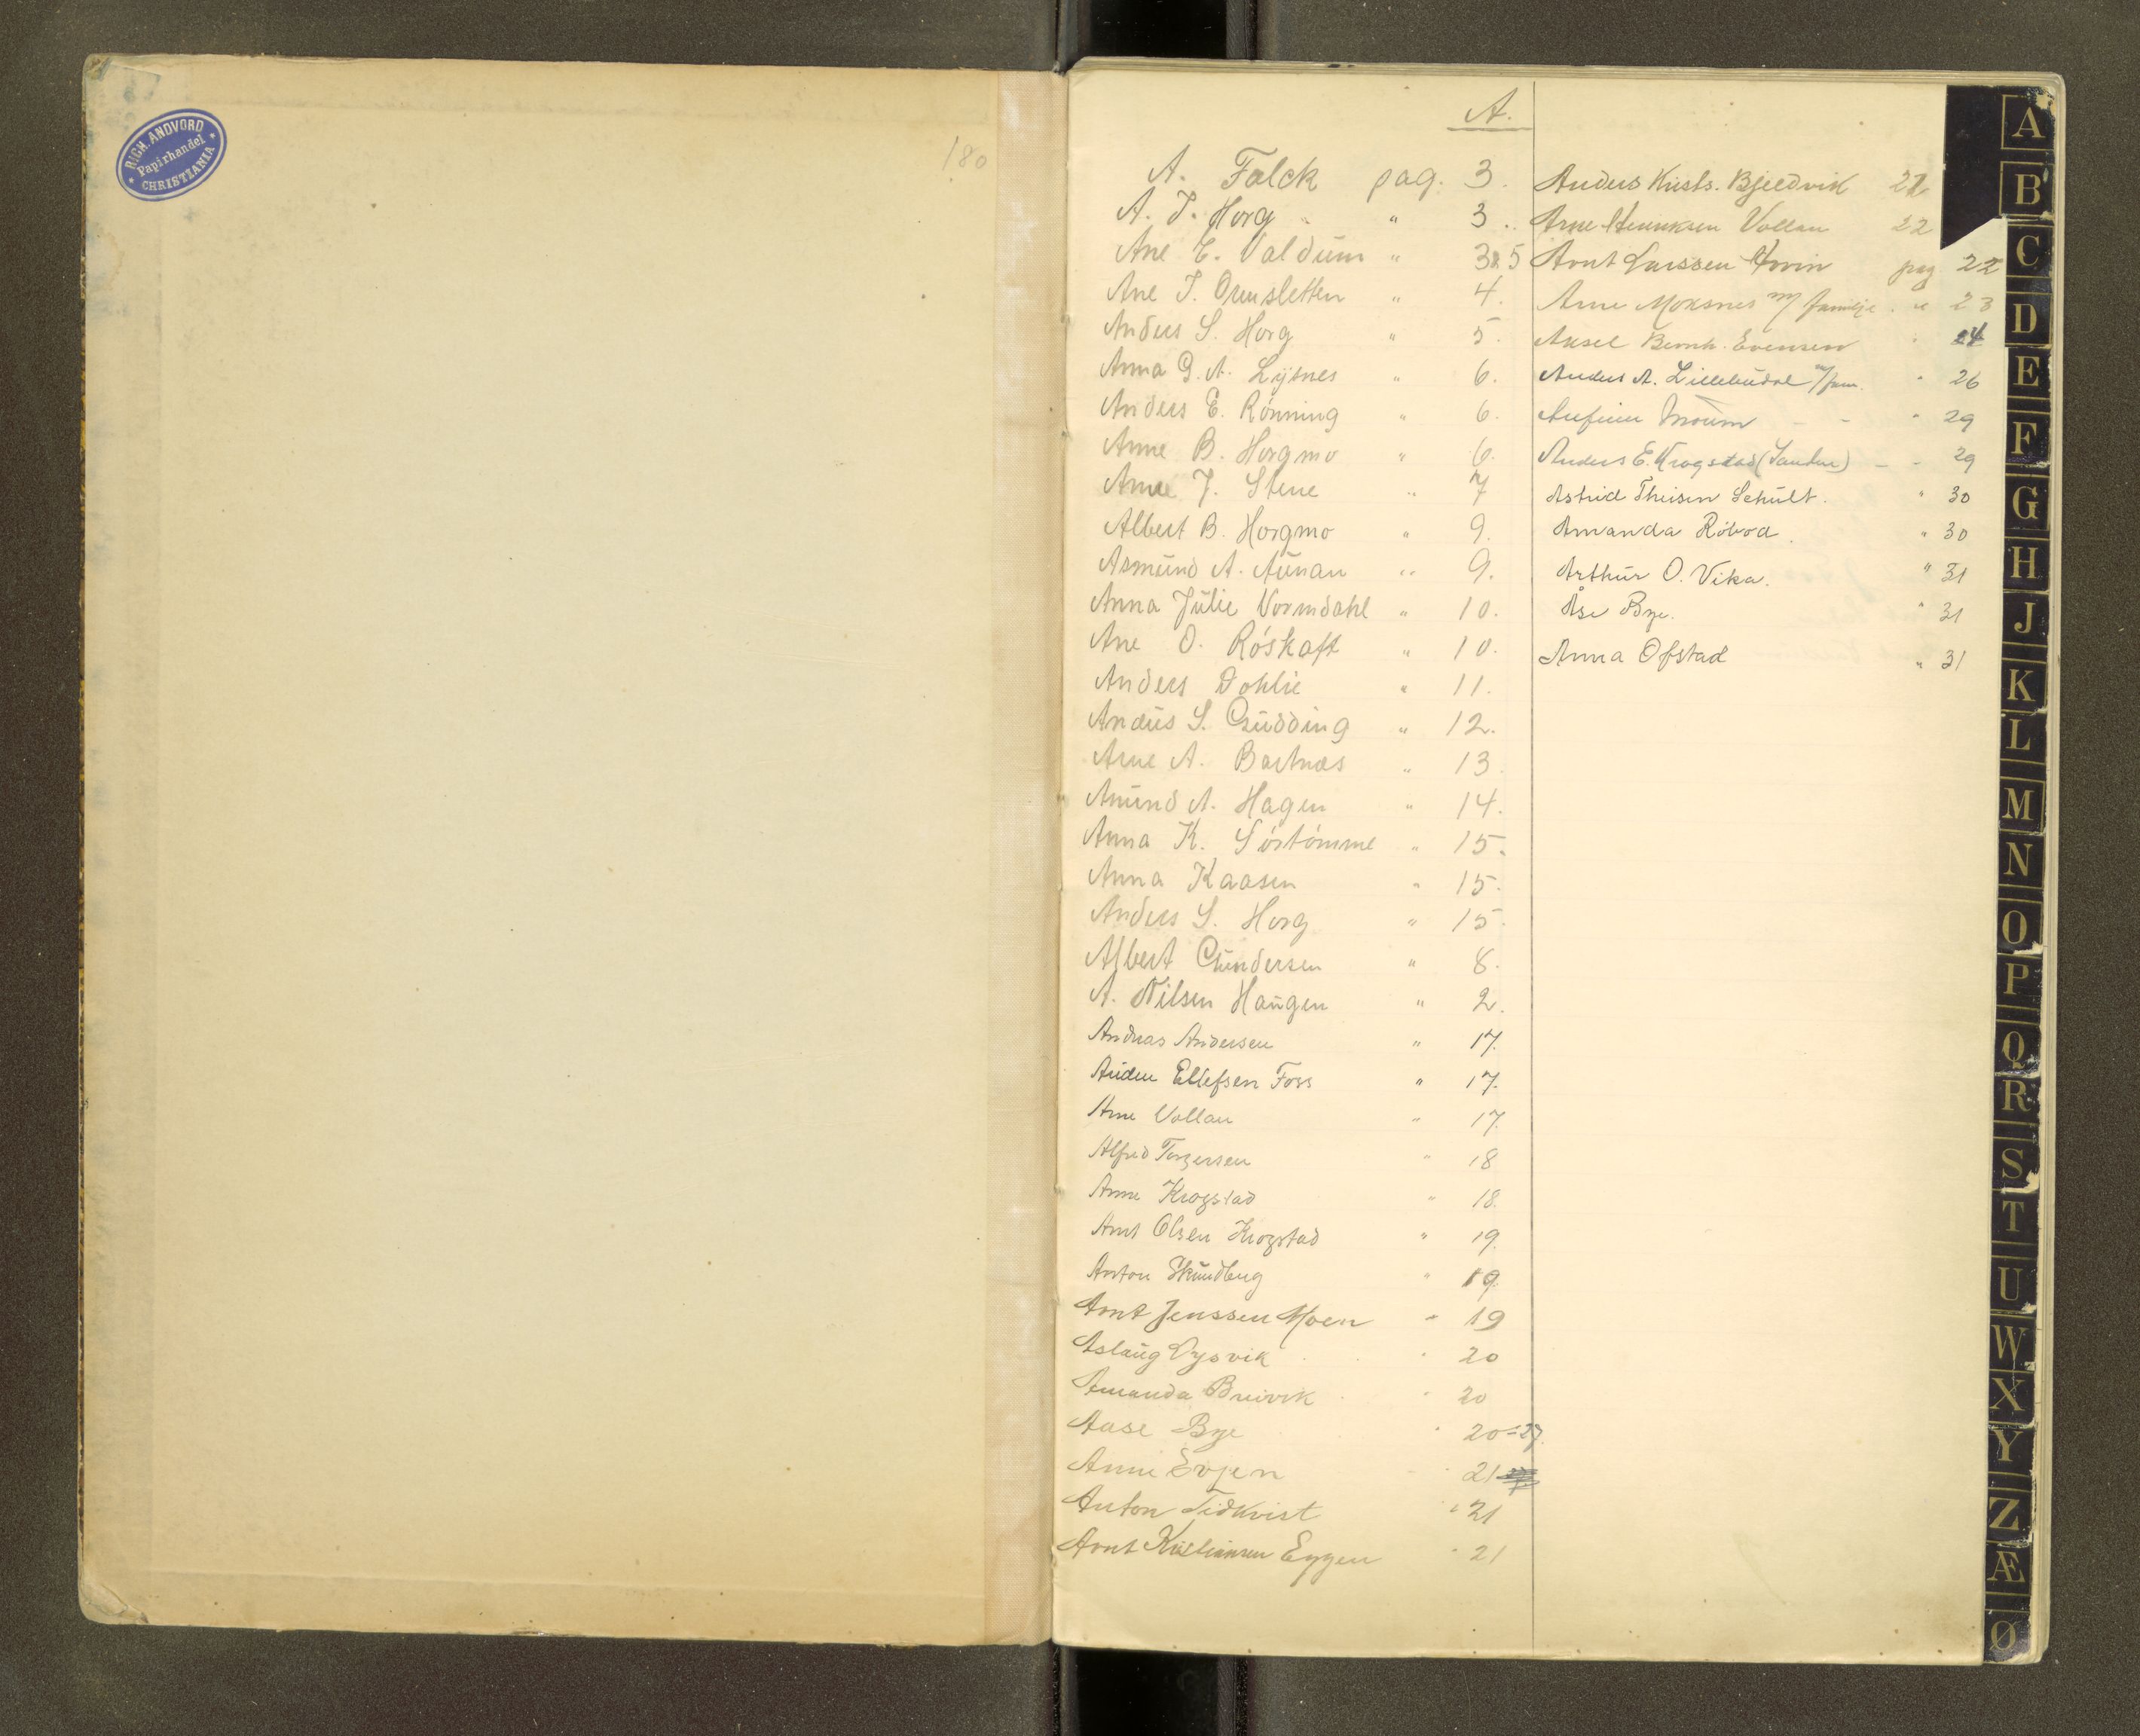 RICH. ANDVORD
Papirhandel
CHRISTIANIA
180
A.
A. Falck pag. 3.
A. J. Horg " 3.
Ane E. Valdum " 3&5
Ane J. Ormsletten " 4.
Anders S. Horg " 5.
Anna G. A. Lysnes " 6.
Anders E. Rönning " 6.
Anne B. Horgmo " 6.
Anne J. Stene " 7
Albert B. Horgmo " 9.
Asmund A. Aunan " 9.
Anna Julie Vormdahl " 10.
Ane O. Röskaft " 10.
Anders Dohlie " 11.
Anders S. Gudding " 12.
Arne A. Bartnæs " 13.
Amund A. Hagen " 14.
Anna K. Sörtömme " 15.
Anna Kaasen " 15.
Anders S. Horg " 15.
Albert Gundersen " 8.
A. Nilsen Haugen " 2.
Andreas Andersen " 17.
Auden Ellefsen Foss " 17.
Arne Vollan " 17.
Alfred Torgersen " 18
Anne Krogstad " 18.
Arnt Olsen Krogstad " 19.
Anton Skundberg " 19.
Arnt Jenssen Moen " 19
Aslaug Dysvik " 20
Amanda Breivik " 20
Aase Bye " 20-27.
Anne Evjen 21
Anton Tidkvist " 21
Arnt Kristiansen Eggen " 21
Anders Krists. Bjeldvik 22
Arne Henriksen Vollan 22
Arnt Larssen Hovin pag 22
Arne Moksnes m/ familje " 23
Aksel Bernh. Evensen " 24
Anders A. Lillebudal m/fam. " 26
Arfinn Moum - - " 29
Anders E. Krogstad - - 29
Astrid Theisen Schult. " 30
Amanda Röbod. " 30
Arthur O. Vika. " 31
Åse Bye. " 31
Anna Ofstad " 31
A
B
C
D
E
F
G
H
J
K
L
M
N
O
P
Q
R
S
T
U
W
X
Y
Z
Æ
Ø